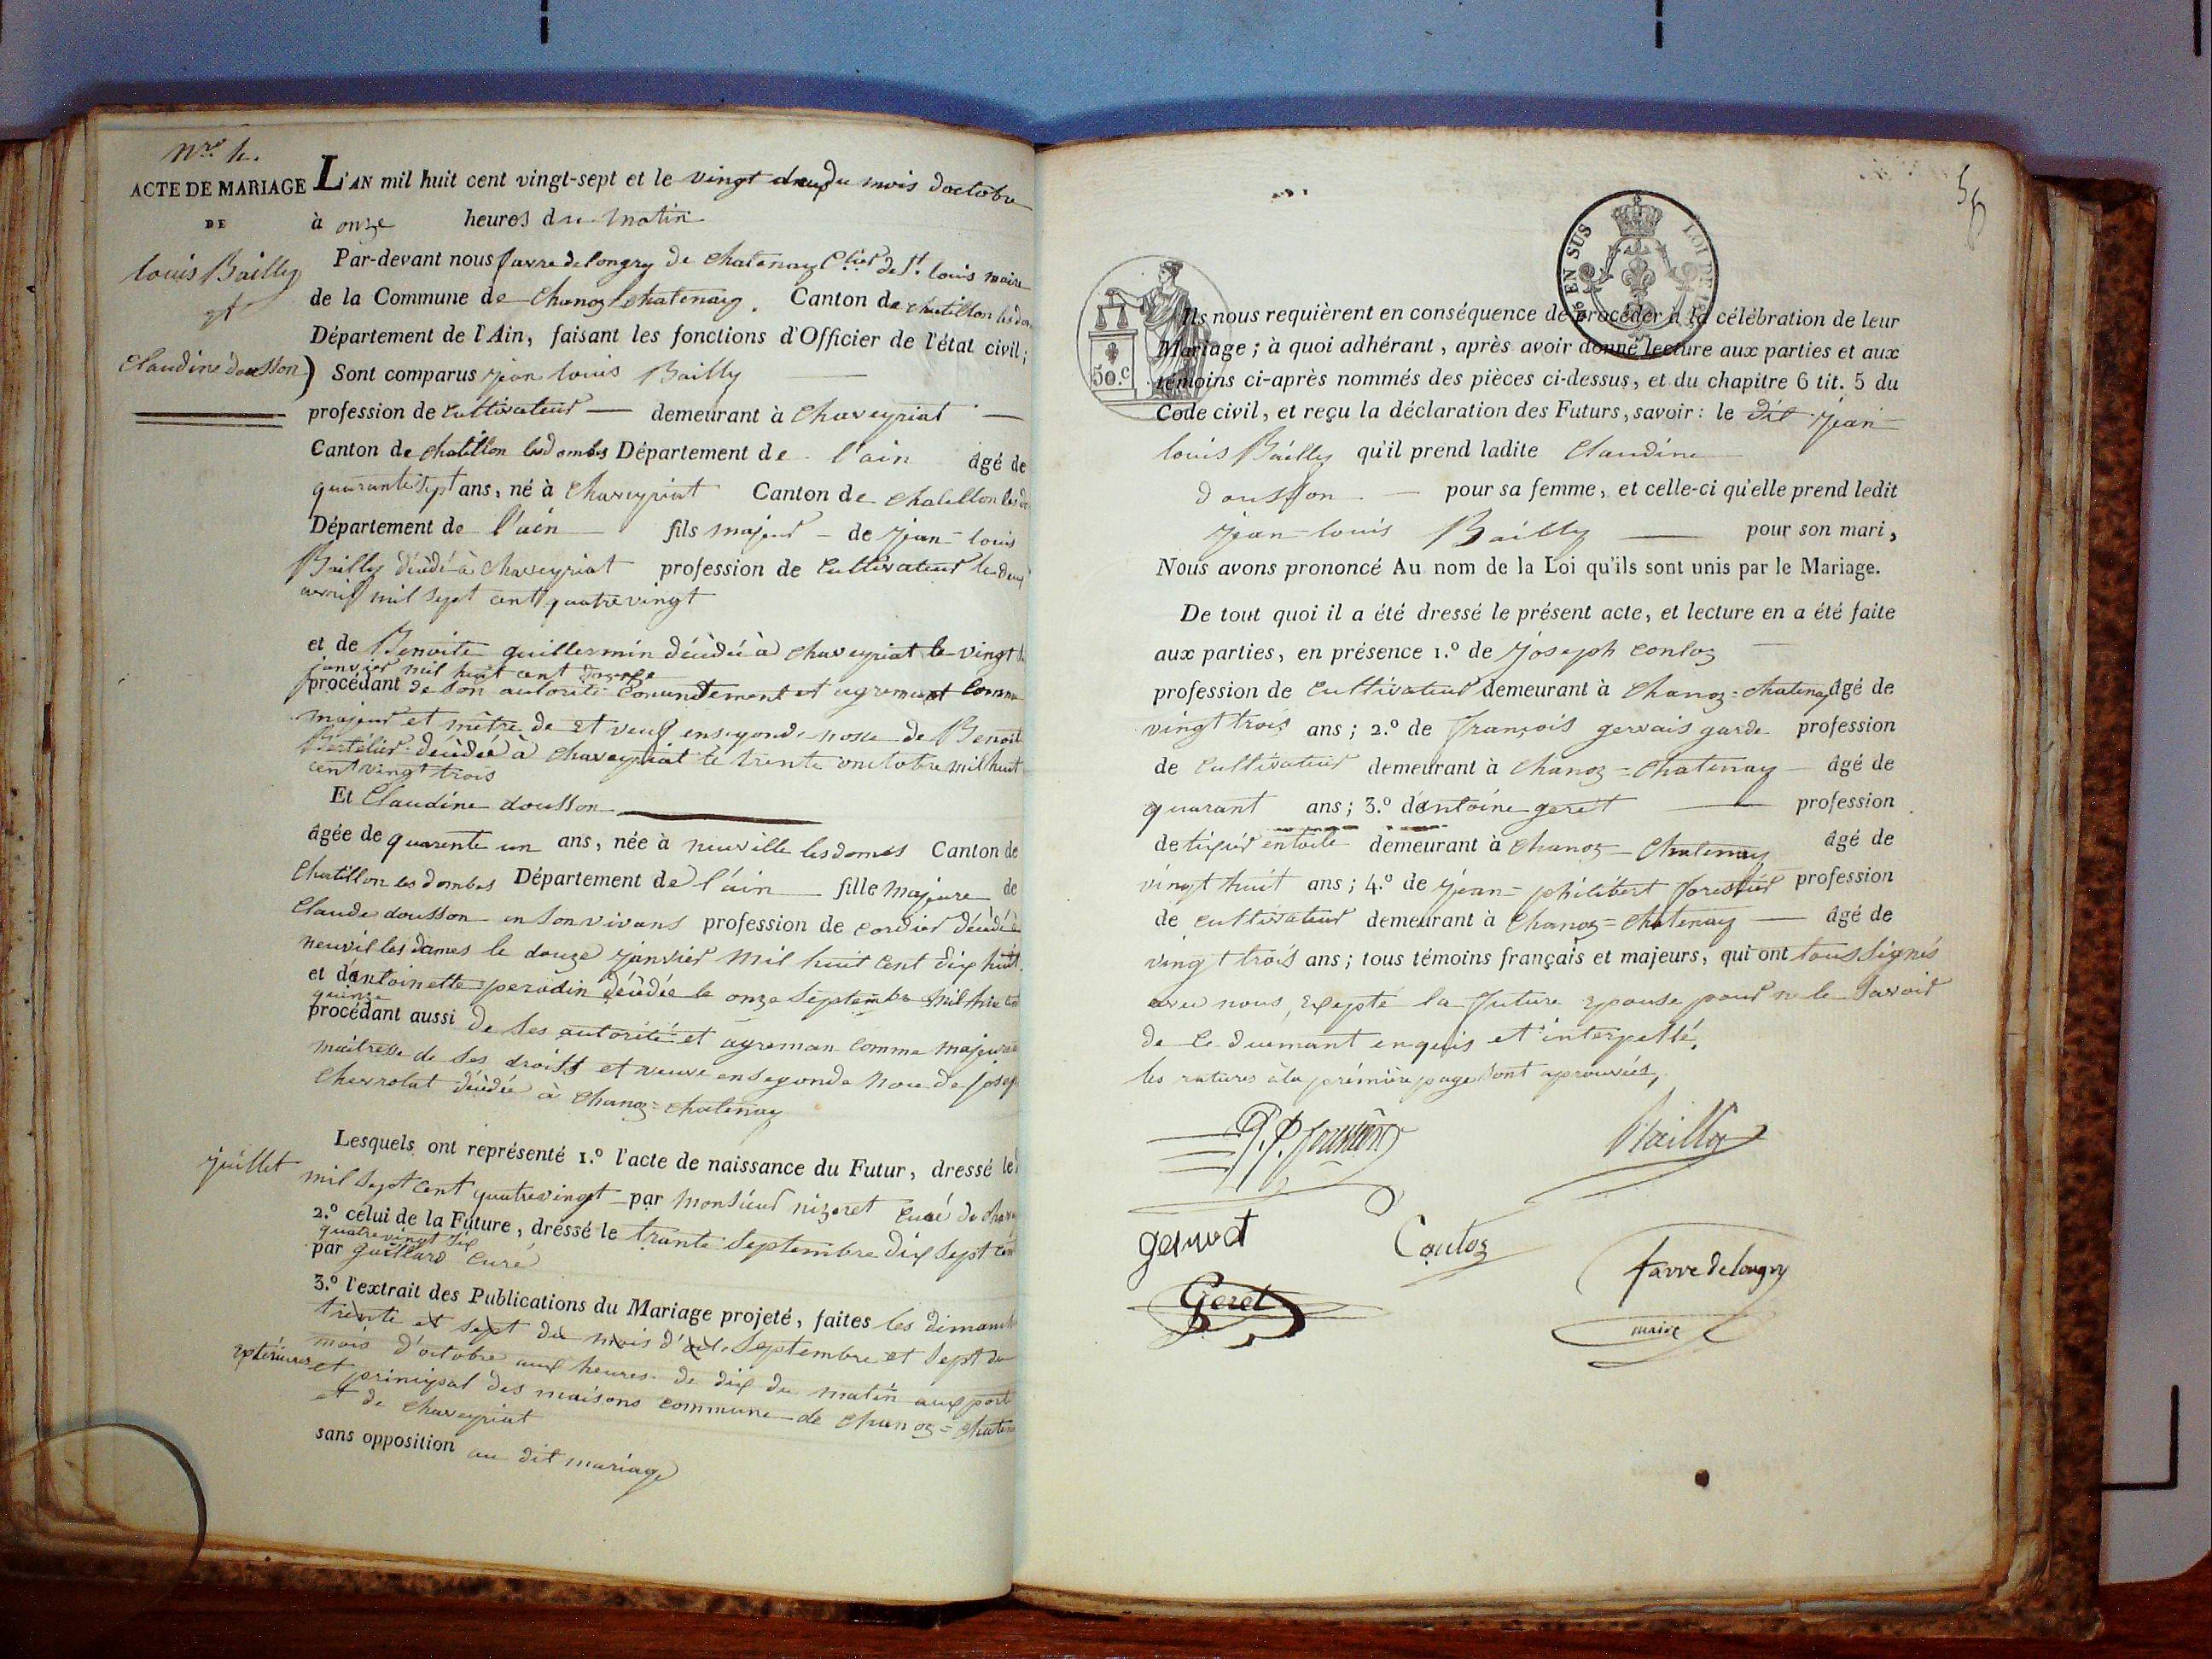 Nro 4.
ACTE DE MARIAGE
DE
louis Bailly
et
Claudine dousson
L'AN mil huit cent vingt-sept et le vingt deux du mois doctobre
à onze heures du matin
Par-devant nous favre delongry de chatenay Chier de St. louis maire
de la Commune de Chanoz chatenay. Canton de chatillon les dom
Département de l'Ain, faisant les fonctions d'Officier de l'état civil;
Sont comparus jean louis Bailly
profession de Cultivateur demeurant à Chaveyriat
Canton de chatillon les dombes Département de l'ain âgé de
quarante sept ans, né à Chaveyriat Canton de chatillon les do
Département de l'ain fils majeur de jean-louis
Bailly décédé à Chaveyriat profession de Cultivateur le deux
avril mil sept cent quatre vingt
et de Benoite guillermin décédée à Chaveyriat le vingt
janvier mil huit cent
procédant de son autorité et agremant comme
majeur et mêtre de et veuf en segonde nosse de Benoit
décédée à Chaveyriat le trente octobre mil huit
cent vingt trois
Et Claudine dousson
âgée de quarente un ans, née à neuville les domes Canton de
Chatillon les dombes Département de l'ain fille majeure de
Claude dousson en son vivans profession de cordier décédé à
neuvil les dames le douze janvier mil huit cent dix huit.
et d'antoinette perodin décédée le onze septembre mil huit cen
quinze
procédant aussi de ses autorité et agreman comme majeure
maitresse de ses droits et veuve en segonde noce de josep
Chevrolat décédé à Chanoz=chatenay
Lesquels ont représenté 1.º l'acte de naissance du Futur, dressé le
juillet
mil sept cent quatre vingt par monsieur nizeret Curé de chavey
2.º celui de la Future, dressé le trante septembre dix sept cen
quatrevingt six
par guillard Curé
3.º l'extrait des Publications du Mariage projeté, faites les dimanch
trente et sept du mois d' septembre et sept du
mois d'octobre aux heures de dix du matin aux port
extérieures
et principal des maisons commune de Chanoz=Chaten
et de Chaveyriat
sans opposition au dit mariage
56
EN SUS
LOI DE
50.c
Ils nous requièrent en conséquence de procéder à la célébration de leur
Mariage; à quoi adhérant, après avoir donné lecture aux parties et aux
témoins ci-après nommés des pièces ci-dessus, et du chapitre 6 tit. 5 du
Code civil, et reçu la déclaration des Futurs, savoir: le dit jean
louis Bailly qu'il prend ladite Claudine
dousson pour sa femme, et celle-ci qu'elle prend ledit
jean louis Bailly pour son mari,
Nous avons prononcé Au nom de la Loi qu'ils sont unis par le Mariage.
De tout quoi il a été dressé le présent acte, et lecture en a été faite
aux parties, en présence 1.º de joseph Conloz
profession de Cultivateur demeurant à Chanoz=chatenay âgé de
vingt trois ans; 2.º de françois gervais garde profession
de Cultivateur demeurant à Chanoz=Chatenay âgé de
quarant ans; 3.º d'antoine geret profession
de tixier en toile demeurant à Chanoz=Chatenay âgé de
vingt huit ans; 4.º de jean=philibert forestier profession
de cultivateur demeurant à Chanoz=Chatenay âgé de
vingt trois ans; tous témoins français et majeurs, qui ont tous signés
avec nous, exepté la future epouse pour ne le savoir
de ce duemant enquis et interpellé.
les ratures à la première page sont aprouvées,
Bailly
Couloz
favre delongry
Geret
maire